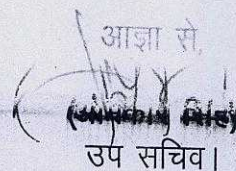 आज्ञा से,
उप सचिव।